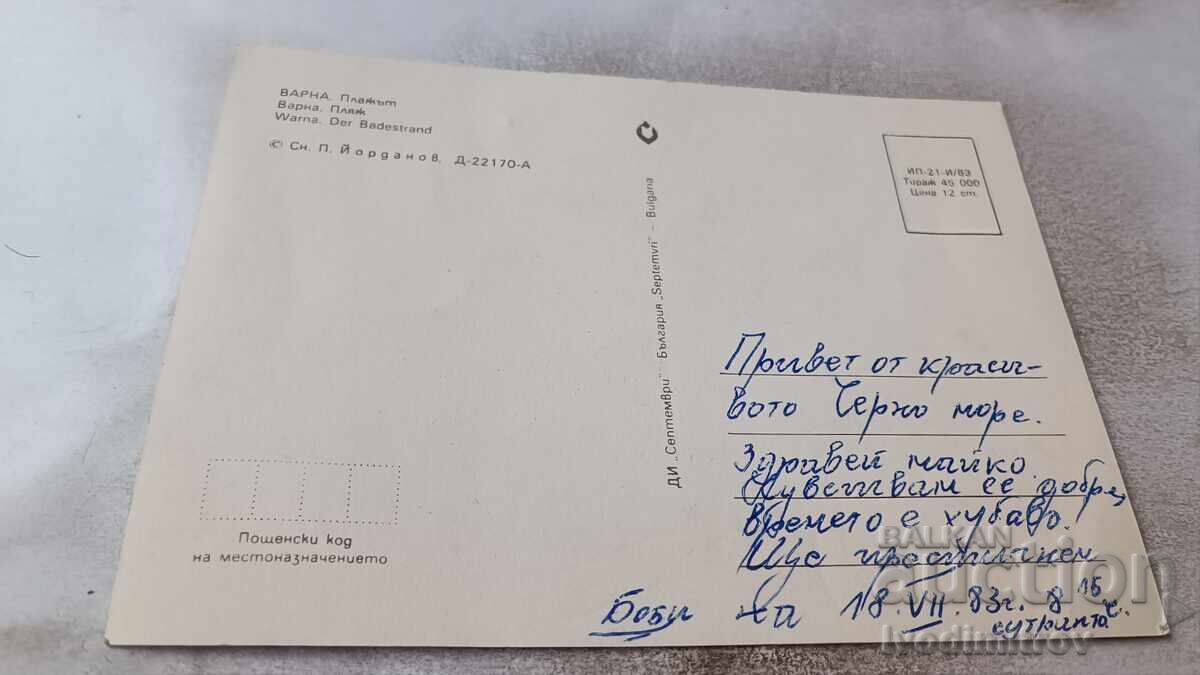 ВАРНА. Плажът
Варна. Пляж
Warna. Der Badestrand
© Сн. П. Йорданов, Д-22170-А
ДИ „Септември" – България „Septemvri" – Bulgaria
ИП-21-И/83
Тираж 45 000
Цена 12 ст.
Привет от краси-
вото Черно море.
Здравей майко.
Чувствам се добре,
времето е хубаво.
Ще пристигнем
на 18.VII.83г. 8 15 ч.
сутринта
Боби
Пощенски код
на местоназначението
BALKAN
auction
Ivodimitrov